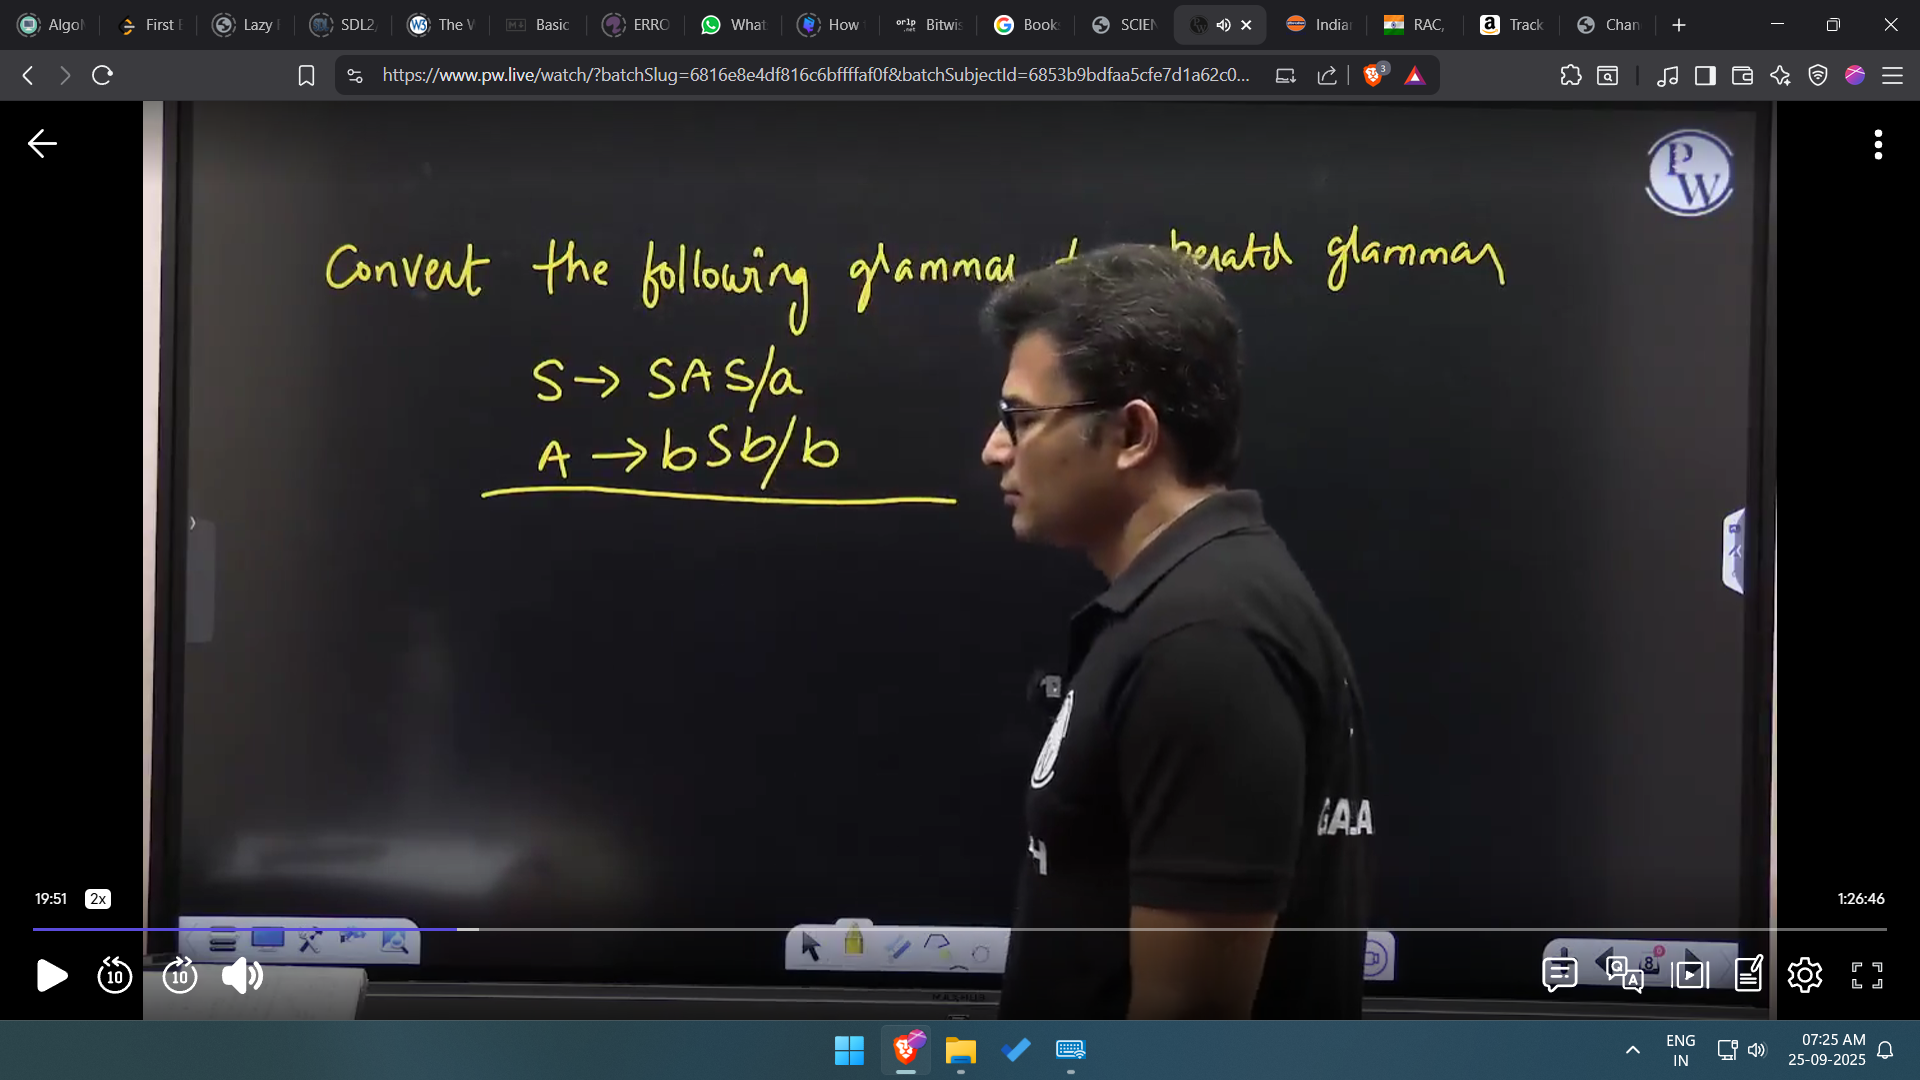 Algo
First E
Lazy
SDL2,
The W
Basic
ERRO
What
How
orlp .net Bitwis
Book
SCIEN
India
RAC,
Track
Chan
https://www.pw.live/watch/?batchSlug=6816e8e4df816c6bffffaf0f&batchSubjectId=6853b9bdfaa5cfe7d1a62c0...
3
PW
Convert the following glammar grammar
S → SAS/a
A → bSb/b
G.A.A
19:51 2x 1:26:46
10 10
8
Q A
ENG
IN
07:25 AM
25-09-2025